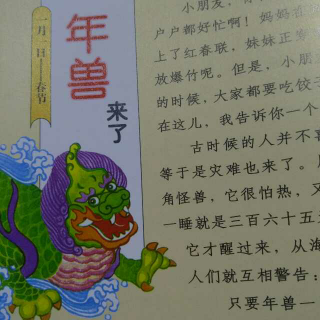 一月一日——春节
年兽
来了
小朋友，
户户都好忙啊！妈妈
上了红春联，妹妹正
放爆竹呢。但是，小
的时候，大家都要吃饺
在这儿，我告诉你一个
古时候的人并不喜
等于是灾难也来了。
角怪兽，它很怕热，又
一睡就是三百六十五
它才醒过来，从海
人们就互相警告：
只要年兽一